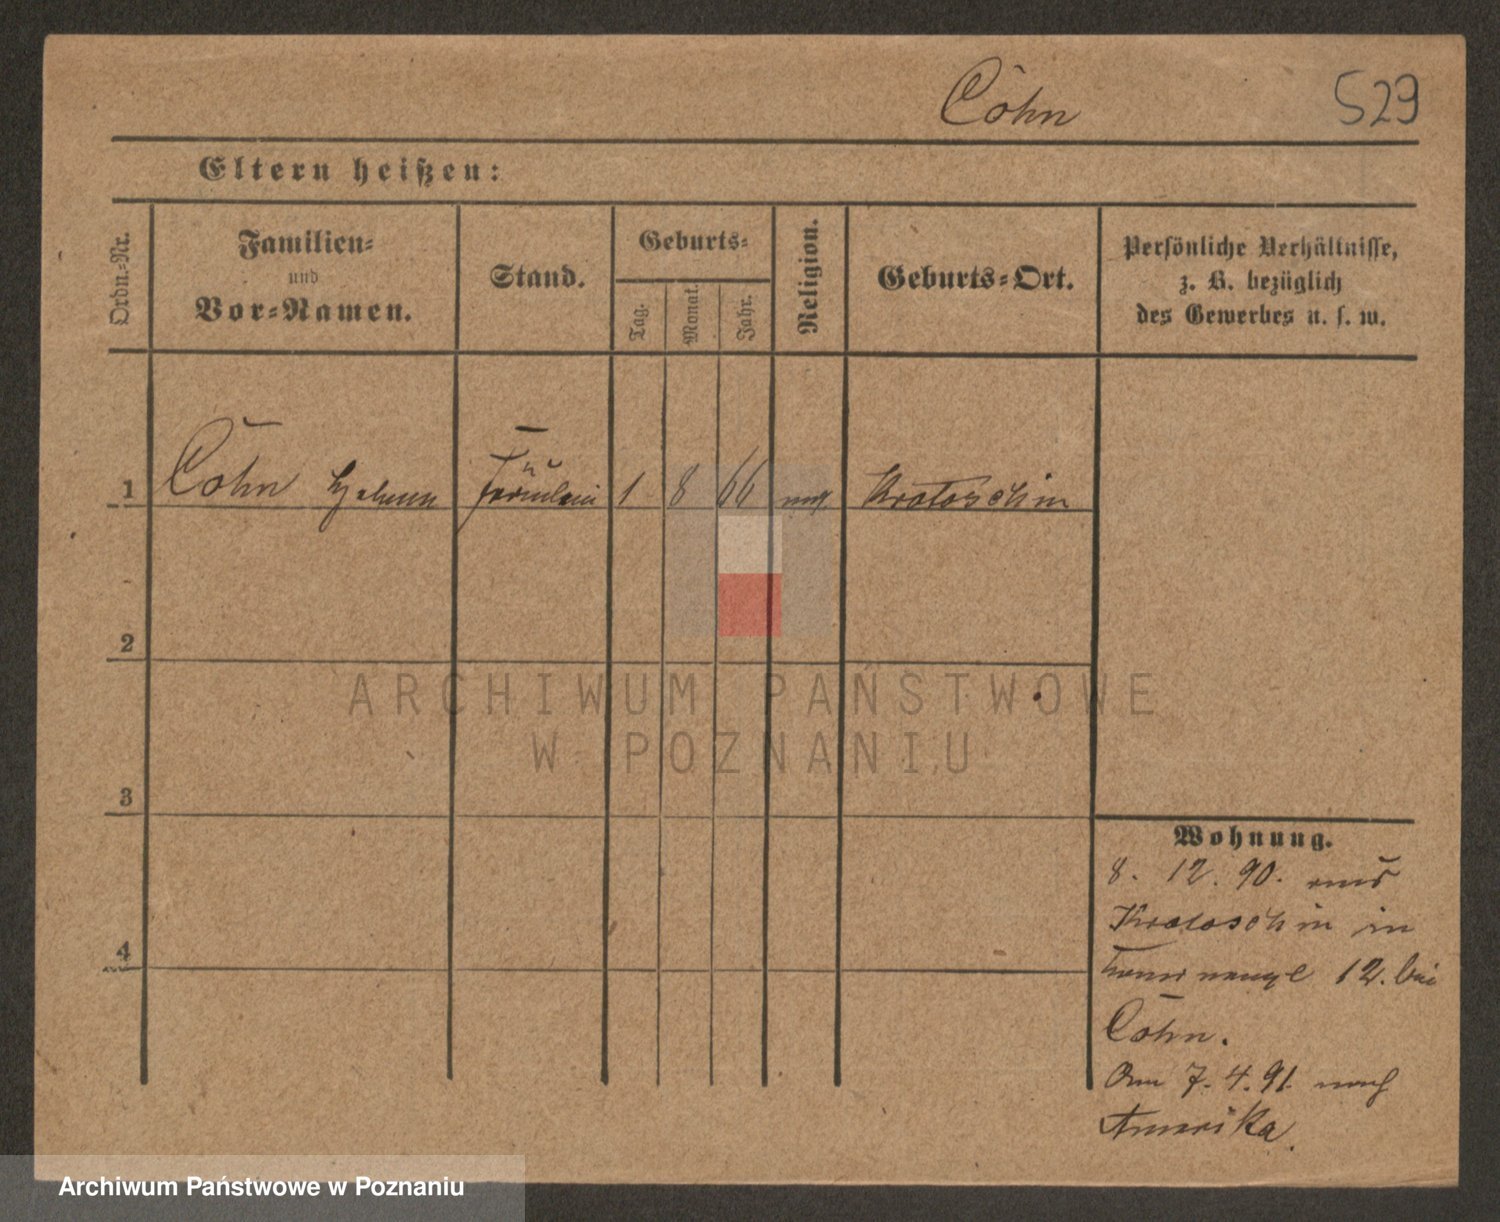 Cohn 529
Eltern heißen:
Ordn.-Nr.
Familien-
und
Vor-Namen.
Stand.
Geburts-
Tag.
Monat.
Jahr.
Religion.
Geburts-Ort.
Persönliche Verhältnisse,
z. B. bezüglich
des Gewerbes u. s. w.
1 Cohn Fräulein 1 8 66 Krotoschin
2
3
4
ARCHIWUM PAŃSTWOWE
W POZNANIU
Wohnung.
8. 12. 90. aus
Krotoschin in
12. bei
Cohn.
Am 7. 4. 91. nach
Amerika.
Archiwum Państwowe w Poznaniu